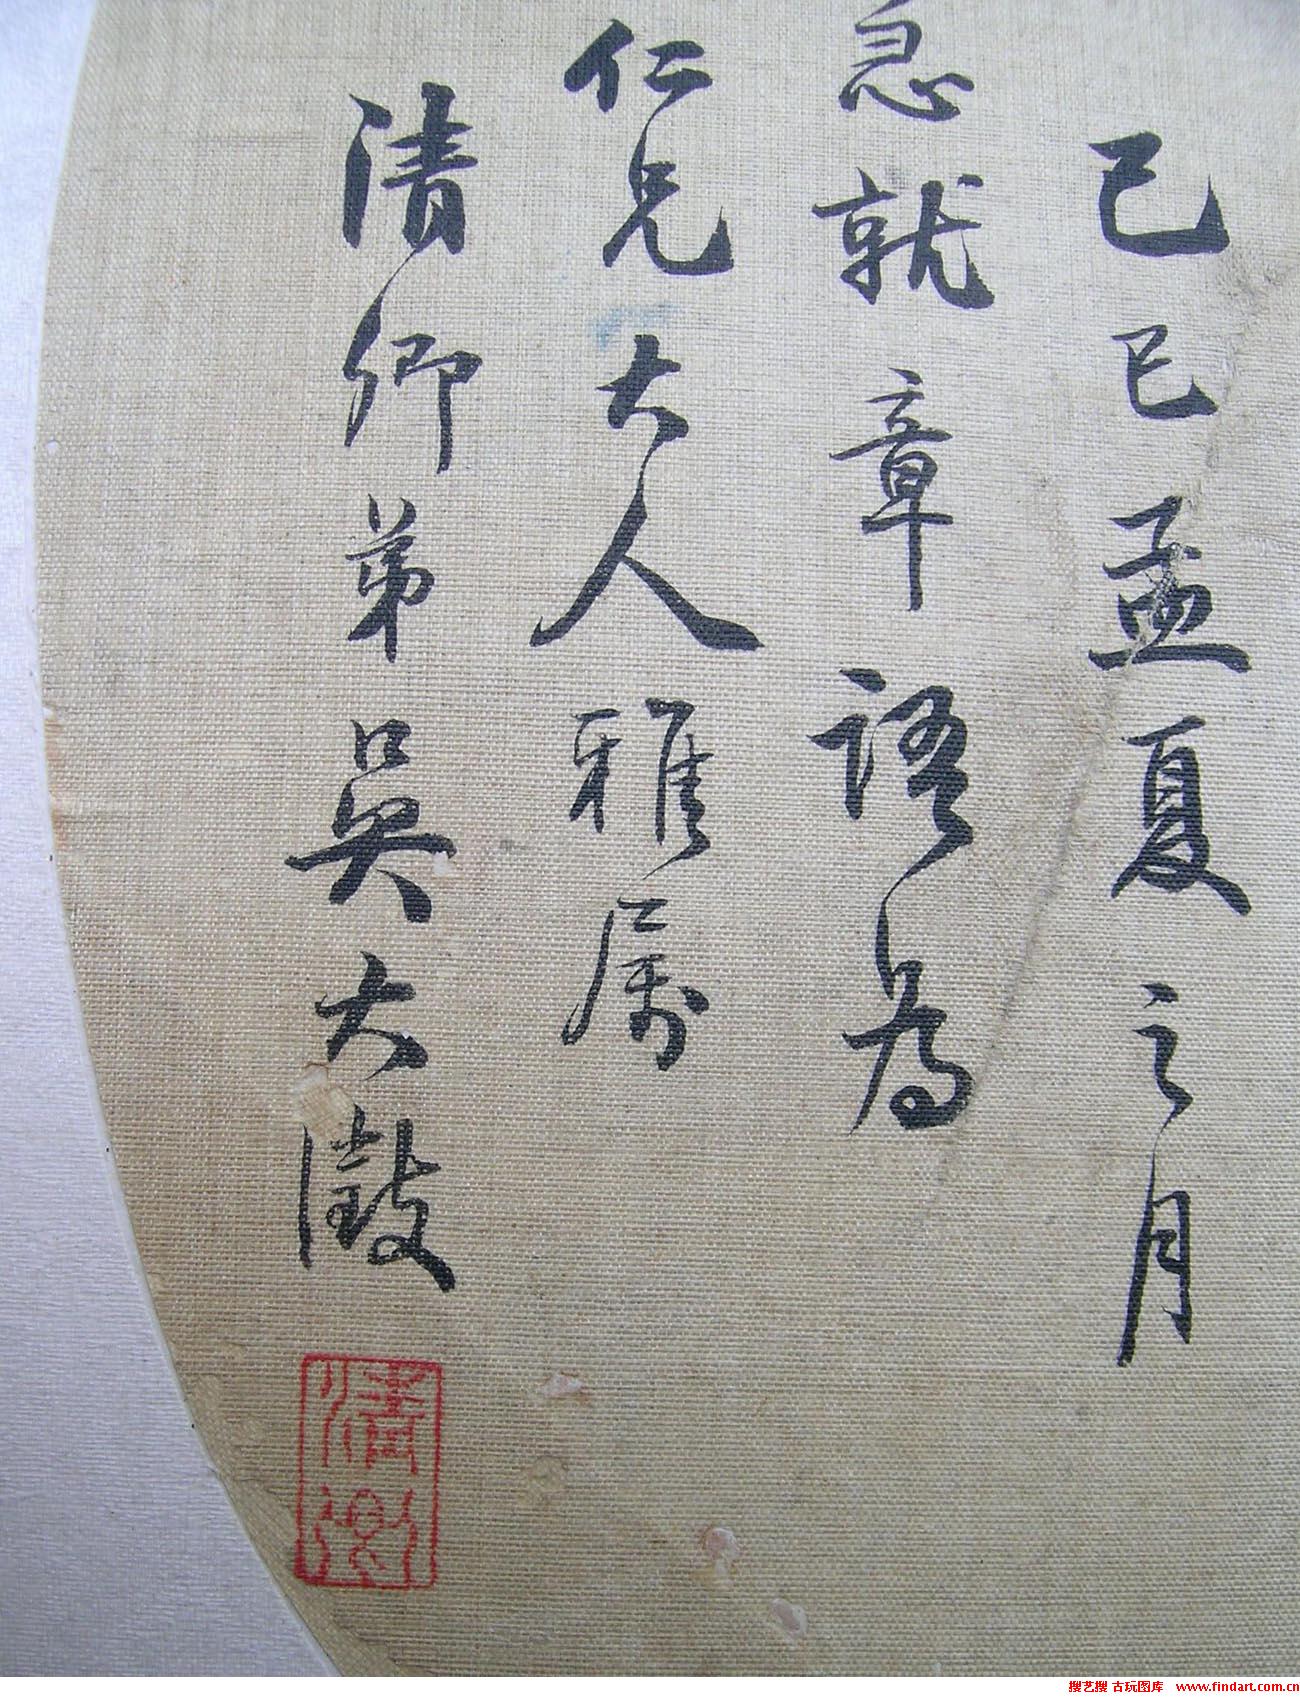 己巳孟夏之月
急就章語為
仁兄大人雅属
清卿弟吳大澂
清卿
搜艺搜 古玩图库 www.findart.com.cn